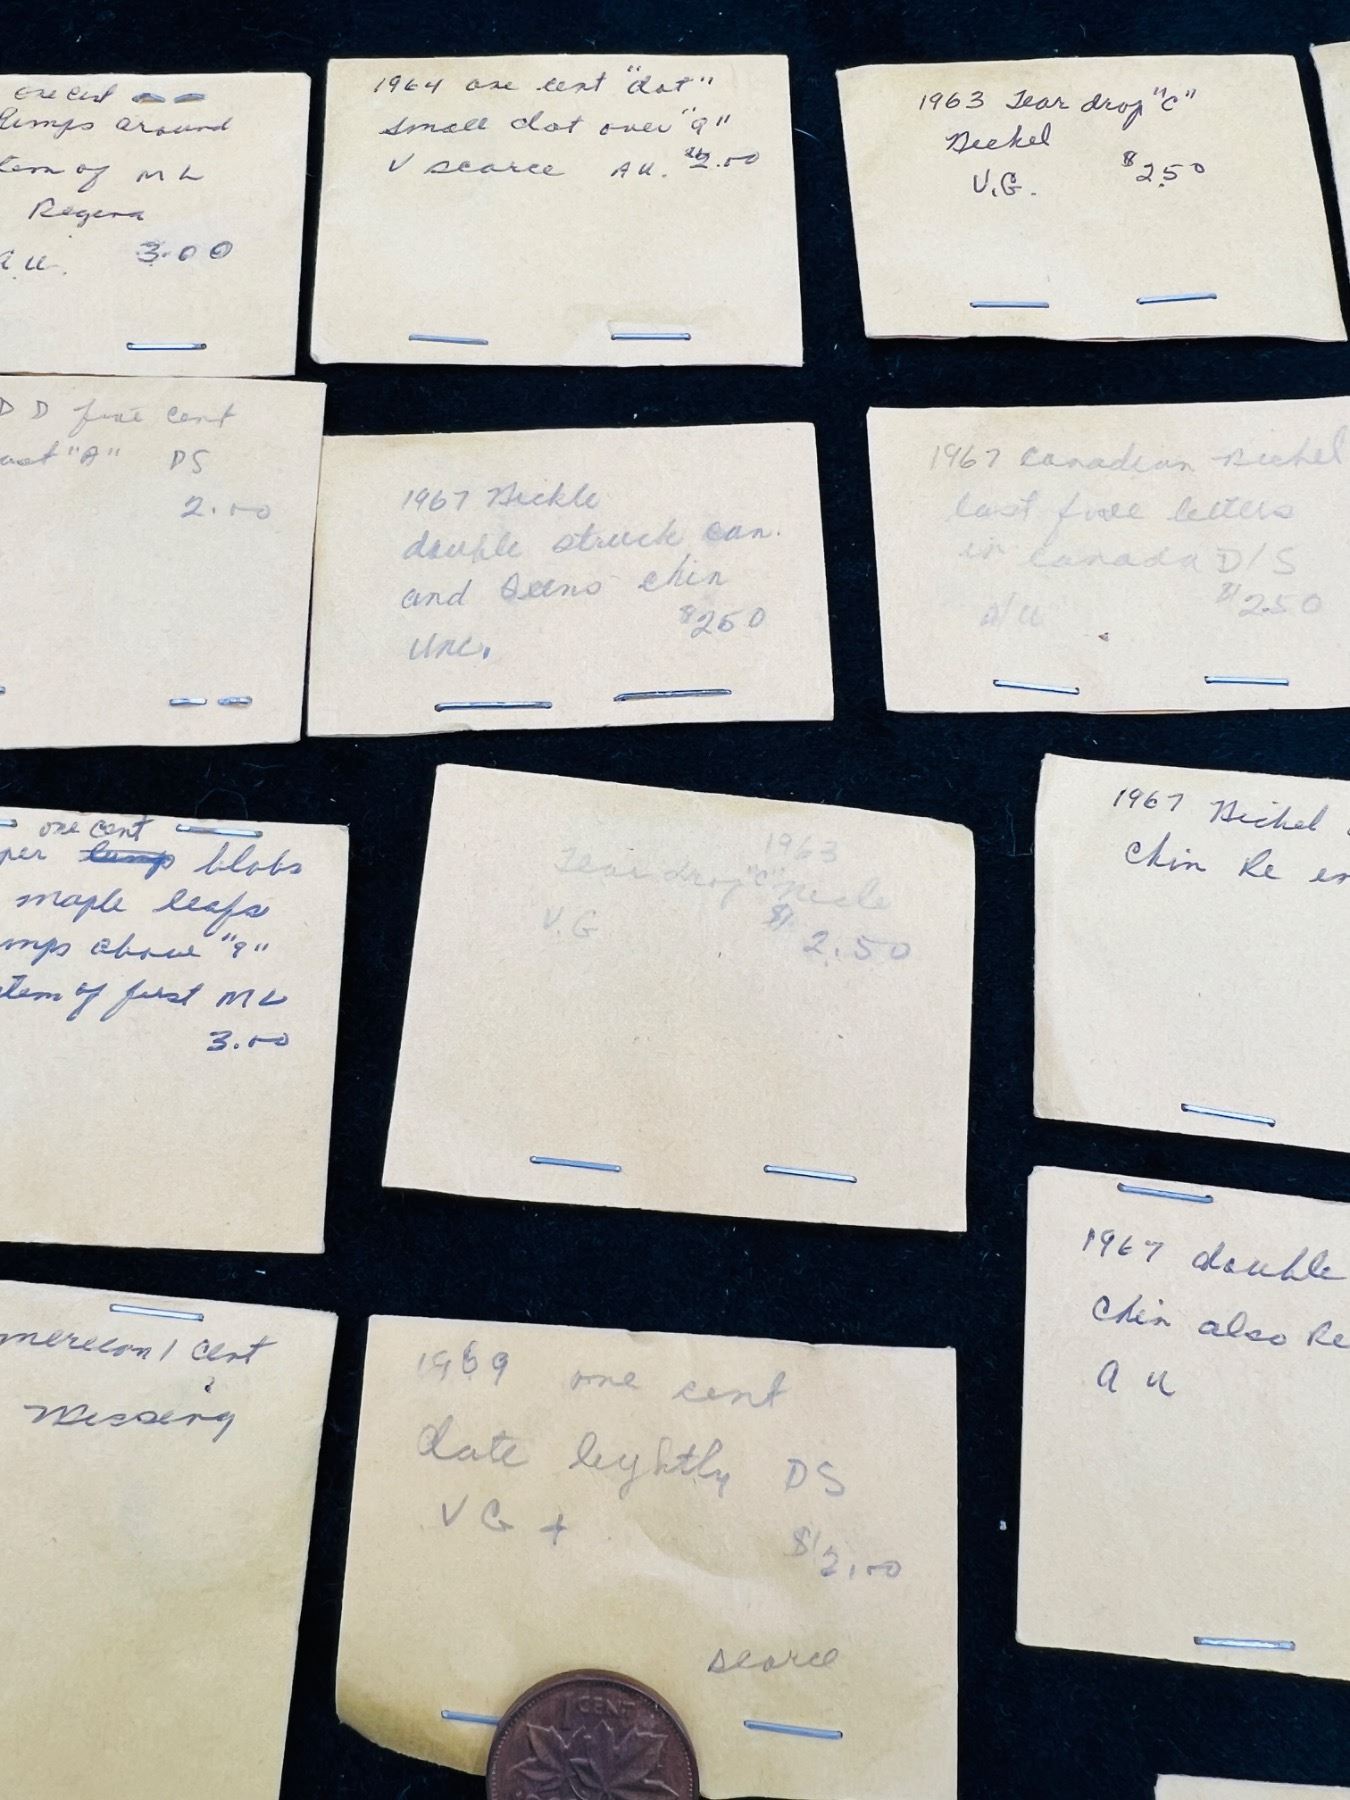 one cent
lumps around
stem of ML
Regina
A.U. 3.00
1964 one cent "dot"
small dot over "9"
V scarce AU. $2.00
1963 Tear drop "C"
Nickel
V.G. $2.50
DD five cent
last "A" DS
2.00
1967 Nickle
double struck can.
and Qeens chin
$2.50
UNC.
1967 Canadian Nickel
last five letters
in Canada D/S
A/U $2.50
one cent
lump blobs
maple leafs
above "9"
stem of first ML
3.00
1963
Tear drop "C"
V.G $2.50
1967 Nickel
Chin Re
1 cent
Missing
1969 one cent
date lightly DS
VG + $2.00
scarce
1 CENT
1967 double
Chin also Re
AU